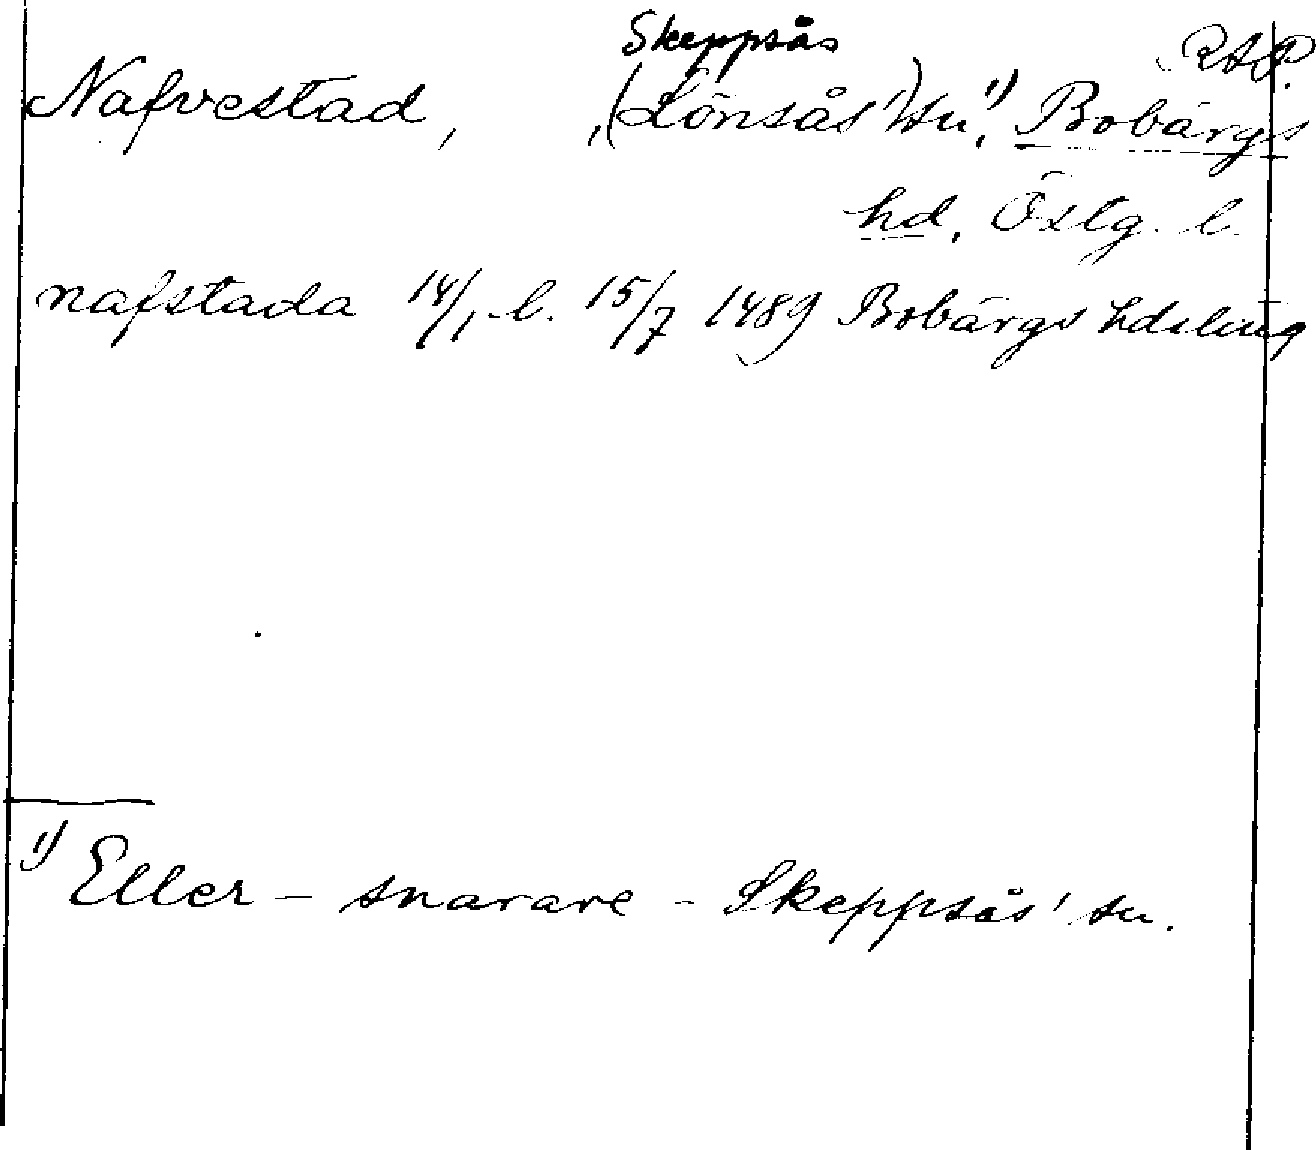 Skeppsås RAP.
Nafvestad, (Lönsås') sn,¹⁾ Bobärgs
hd, Östg. l.
nafstada 14/1 l. 15/7 1489 Bobärgs hdsting
¹⁾ Eller – snarare – Skeppsås' sn.